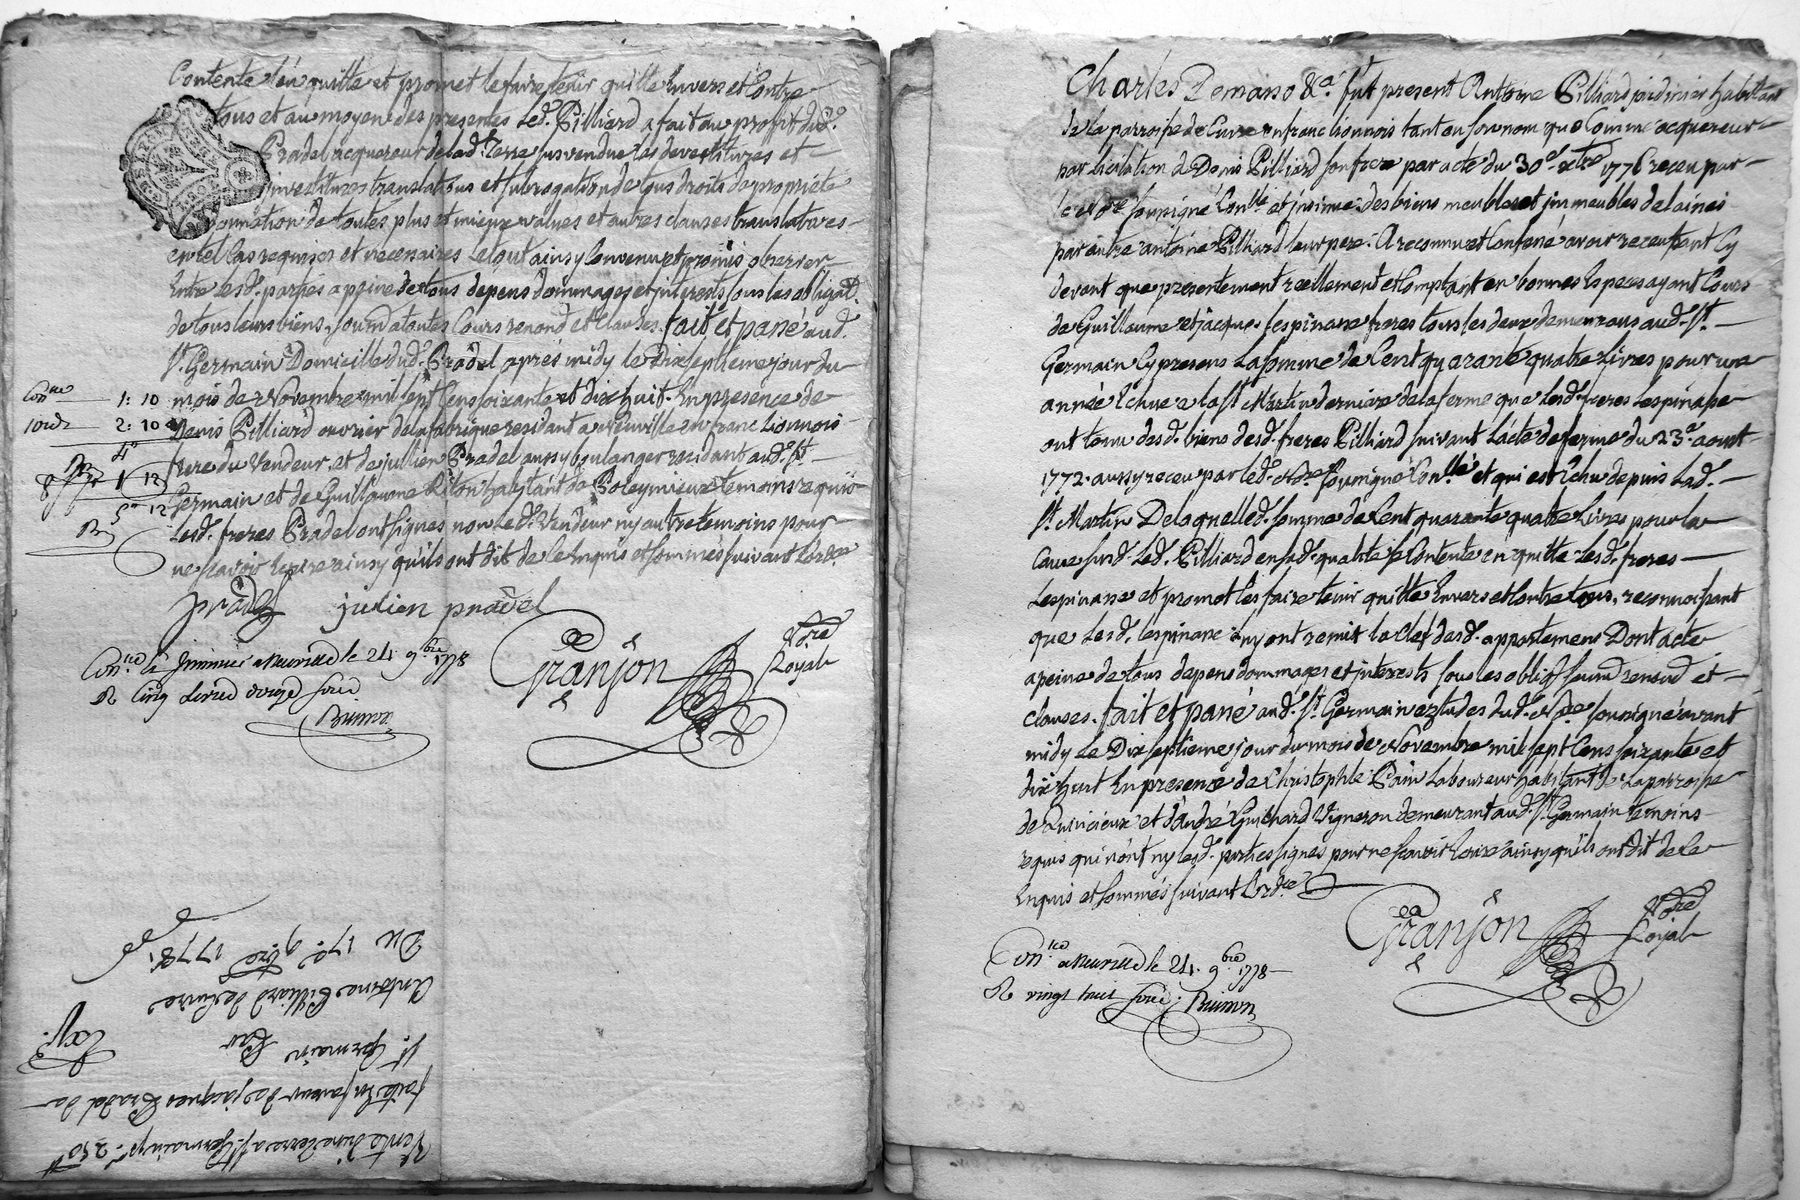 Contente l'en quitte et promet le faire tenir quitte Envers et Contre
tous et au moyen des presentes led. Pilliard a fait au profit dud.
Pradel acquereur de lad. terre sus vendue les devestitures et
investitures translations et subrogation de tous droits de propriété
de toutes plus et mieux values et autres clauses translatives
en tel cas requises et necenaires Le tout ainsy Convenu et promis observer
Entre lesd. parties a peine de tous depens dommages et interests sous les obligat.
de tous leurs biens, soumd a toutes Cours renond et Clauses. fait et pané aud.
St. Germain Domicille dud. Pradel aprés midy le Dix septieme jour du
mois de Novembre mil sept Cens soixante et dix huit. En presence de
Denis Pilliard ouvrier de la fabrique residant a Neuville en franc Lionnois
frere du Vendeur, et de jullien Pradel aussy boulanger residant aud. St.
Germain et de Guillaume Riton habitant de Poleymieux temoins requis
Lesd. freres Pradel ont signes non Le d. Vendeur ny autre temoins pour
ne scavoir Ecrire ainsy qu'ils ont dit de ce Enquis et sommés suivant L'ordce.
Con.ne 1: 10
10.d. 2: 10
4
1 13
5 12
pradel julien pradel
Granjon Nore Royal
Con.lé la minutte a neuville le 24 9.bre 1778
R cinq livres douze sous
Du 17e. 9bre 1778.
Antoine Pilliard de Curis
St. Germain Par
faite En faveur de jacques Pradel de
Vente d'une terre a St. Germain pr. 250 #
Charles Demano &a. fut present Antoine Pilliard jardinier habitant
de la parroisse de Curis en franc lionnois tant en son nom que Comme acquereur
par licitation de Denis Pilliard son frere par acte du 30e. xbre 1776 receu par
le Nore soussigné Con.llé et jnsinué. des biens meubles et jmmeubles delaines
par autre antoine Pilliard leur pere. A reconnu et Confené avoir receu tant Cy
devant que presentement reellement et Comptant en bonnes Especes ayant Cours
de Guillaume et jacques Lespinane freres tous les deux demeurans aud. St.
Germain Cy presens La somme de Cent quarante quatre Livres pour une
année Echue a la St. Martin derniere de la ferme que lesd. freres Lespinane
ont tenu desd. biens desd. freres Pilliard suivant L'acte de ferme du 23e. aout
1772. aussy receu par led. Nore soussigné Con.llé et qui est Echu depuis Lad.
St. Martin De laquelle d. somme de Cent quarante quatre Livres pour la
Cause susd. Led. Pilliard en sad. qualité se Contente en quitte lesd. freres
Lespinane et promet les faire tenir quitte Envers et Contre tous, reconnoissant
que lesd. Lespinane luy ont remit la Clef desd. appartemens Dont acte
a peine de tous depens dommages et interests sous les oblig. soumd renond et
clauses. fait et pané aud. St. Germain eztudes dud. Nore soussigné avant
midy Le Dix septieme jour du mois de Novembre mil sept Cens soixante et
dix huit En presence de Christophle Pain Laboureur habitant de La parroisse
de Quincieux et d'André Guichard Vigneron demeurant aud. St. Germain temoins
requis qui n'ont ny lesd. parties signes pour ne scavoir Ecrire ainsy qu'ils ont dit de ce
Enquis et sommés suivant L'ordce.
Granjon Nore Royal
Con.lé a neuville le 24. 9.bre 1778
R vingt trois sous